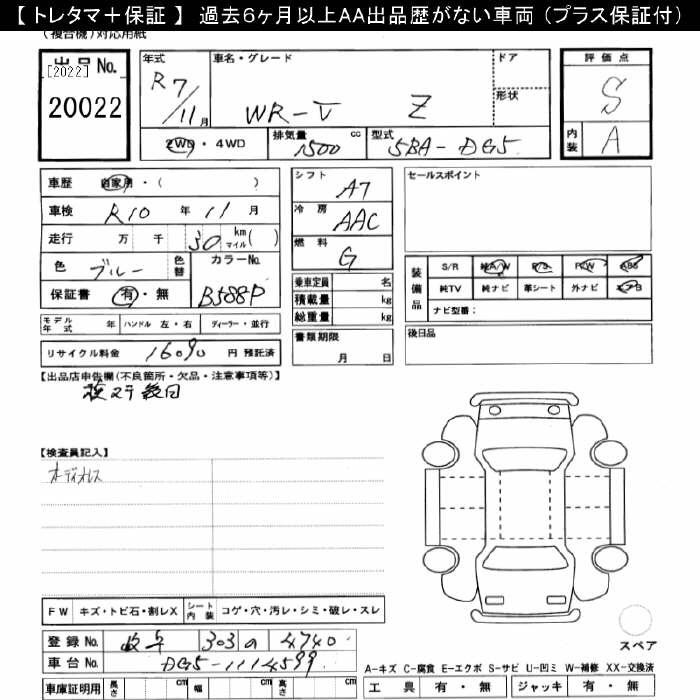 【 トレタマ＋保証 】 過去6ヶ月以上AA出品歴がない車両 (プラス保証付)
(複合機) 対応用紙
出品No.
[2022]
20022
年式
R7/11月
車名・グレード
WR-V Z
ドア
形状
2WD・4WD
排気量 1500 cc
型式 5BA-DG5
評価点
S
内装 A
車歴 自家用・( )
車検 R10 年 11 月
走行 万 千 30 km マイル ( )
色 ブルー 色替
カラーNo. B588P
保証書 有・無
シフト A7
冷房 AAC
燃料 G
乗車定員 名
積載量 kg
総重量 kg
書類期限 月 日
セールスポイント
装備品
S/R 純A/W P/S P/W ABS
純TV 純ナビ 革シート 外ナビ エアB
ナビ型番：
後日品
モデル年式 年 ハンドル 左・右 ディーラー・並行
リサイクル料金 16090 円 預託済
【出品店申告欄(不良箇所・欠品・注意事項等)】
【検査員記入】
オーディオレス
FW キズ・トビ石・割レX シート内装 コゲ・穴・汚レ・シミ・破レ・スレ
登録No. 岐阜 303 の 4740
車台No. DG5-1114599
車庫証明用 長さ cm 幅 cm 高さ cm
スペア
A-キズ C-腐食 E-エクボ S-サビ U-凹ミ W-補修 XX-交換済
工具 有・無 ジャッキ 有・無